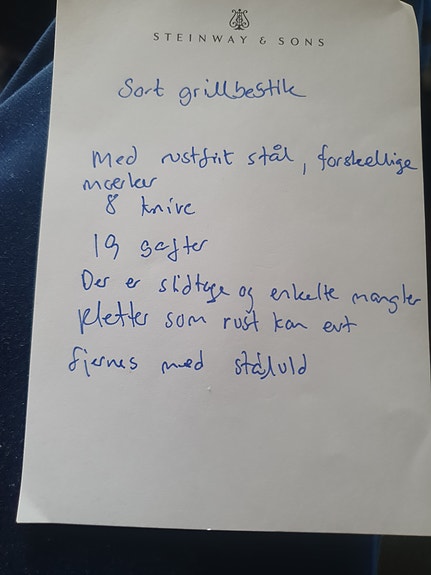 STEINWAY & SONS
Sort grillbestik
Med rustfrit stål, forskellige
mærker
8 knive
19 gafter
Der er slidtage og enkelte mangler
pletter som rust kan evt
fjernes med ståluld